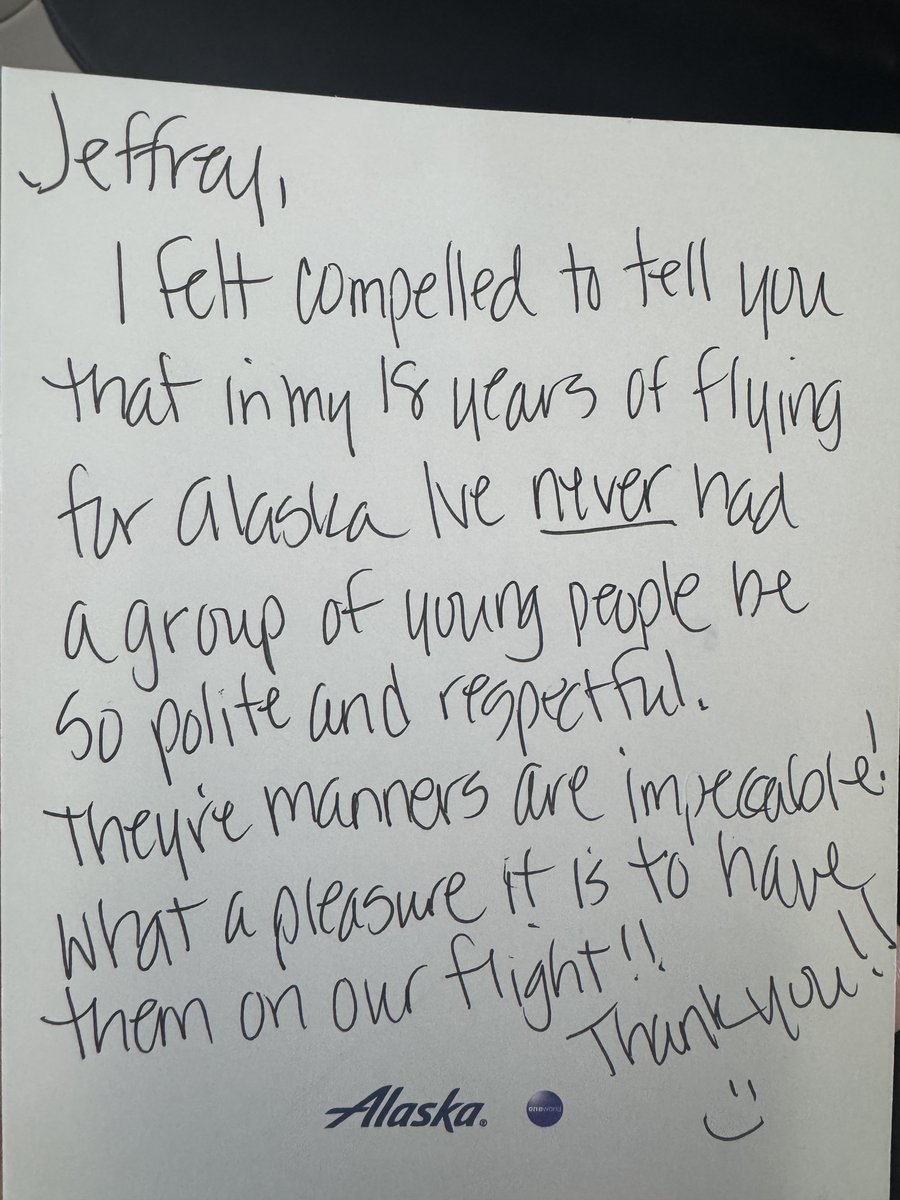 Jeffrey,
I felt compelled to tell you
that in my 18 years of flying
for Alaska Ive never had
a group of young people be
so polite and respectful.
They're manners are impeccable!
What a pleasure it is to have
them on our flight!!
Thank you!!
Alaska®
oneworld